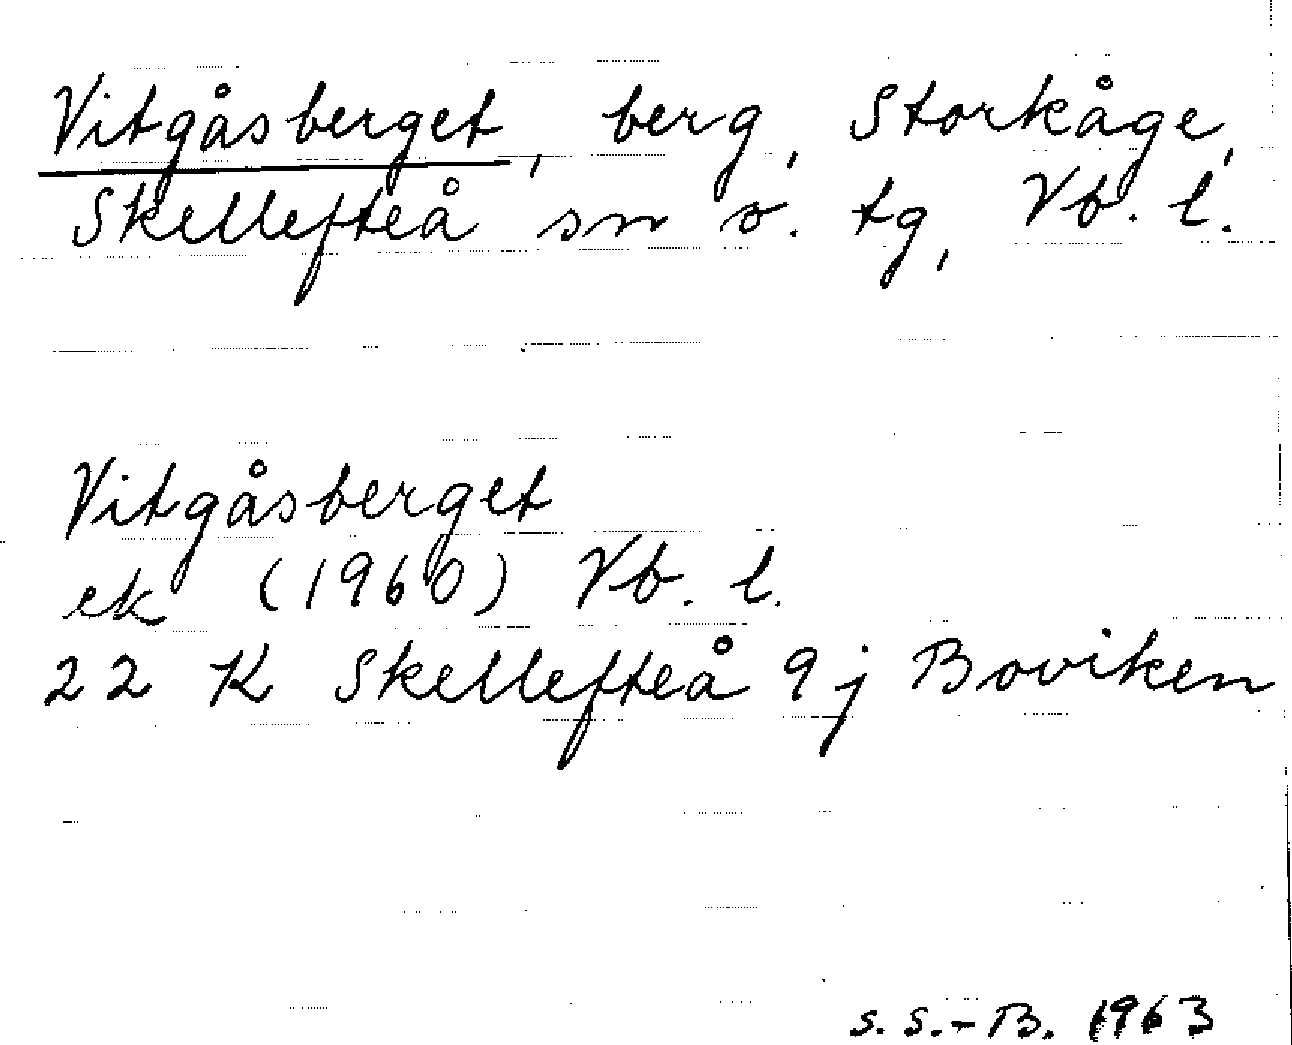 Vitgåsberget, berg, Storkåge,
Skellefteå sn o. tg, Vb. l.
Vitgåsberget
ek (1960) Vb. l.
22 K Skellefteå 9 j Boviken
S. S.-B. 1963